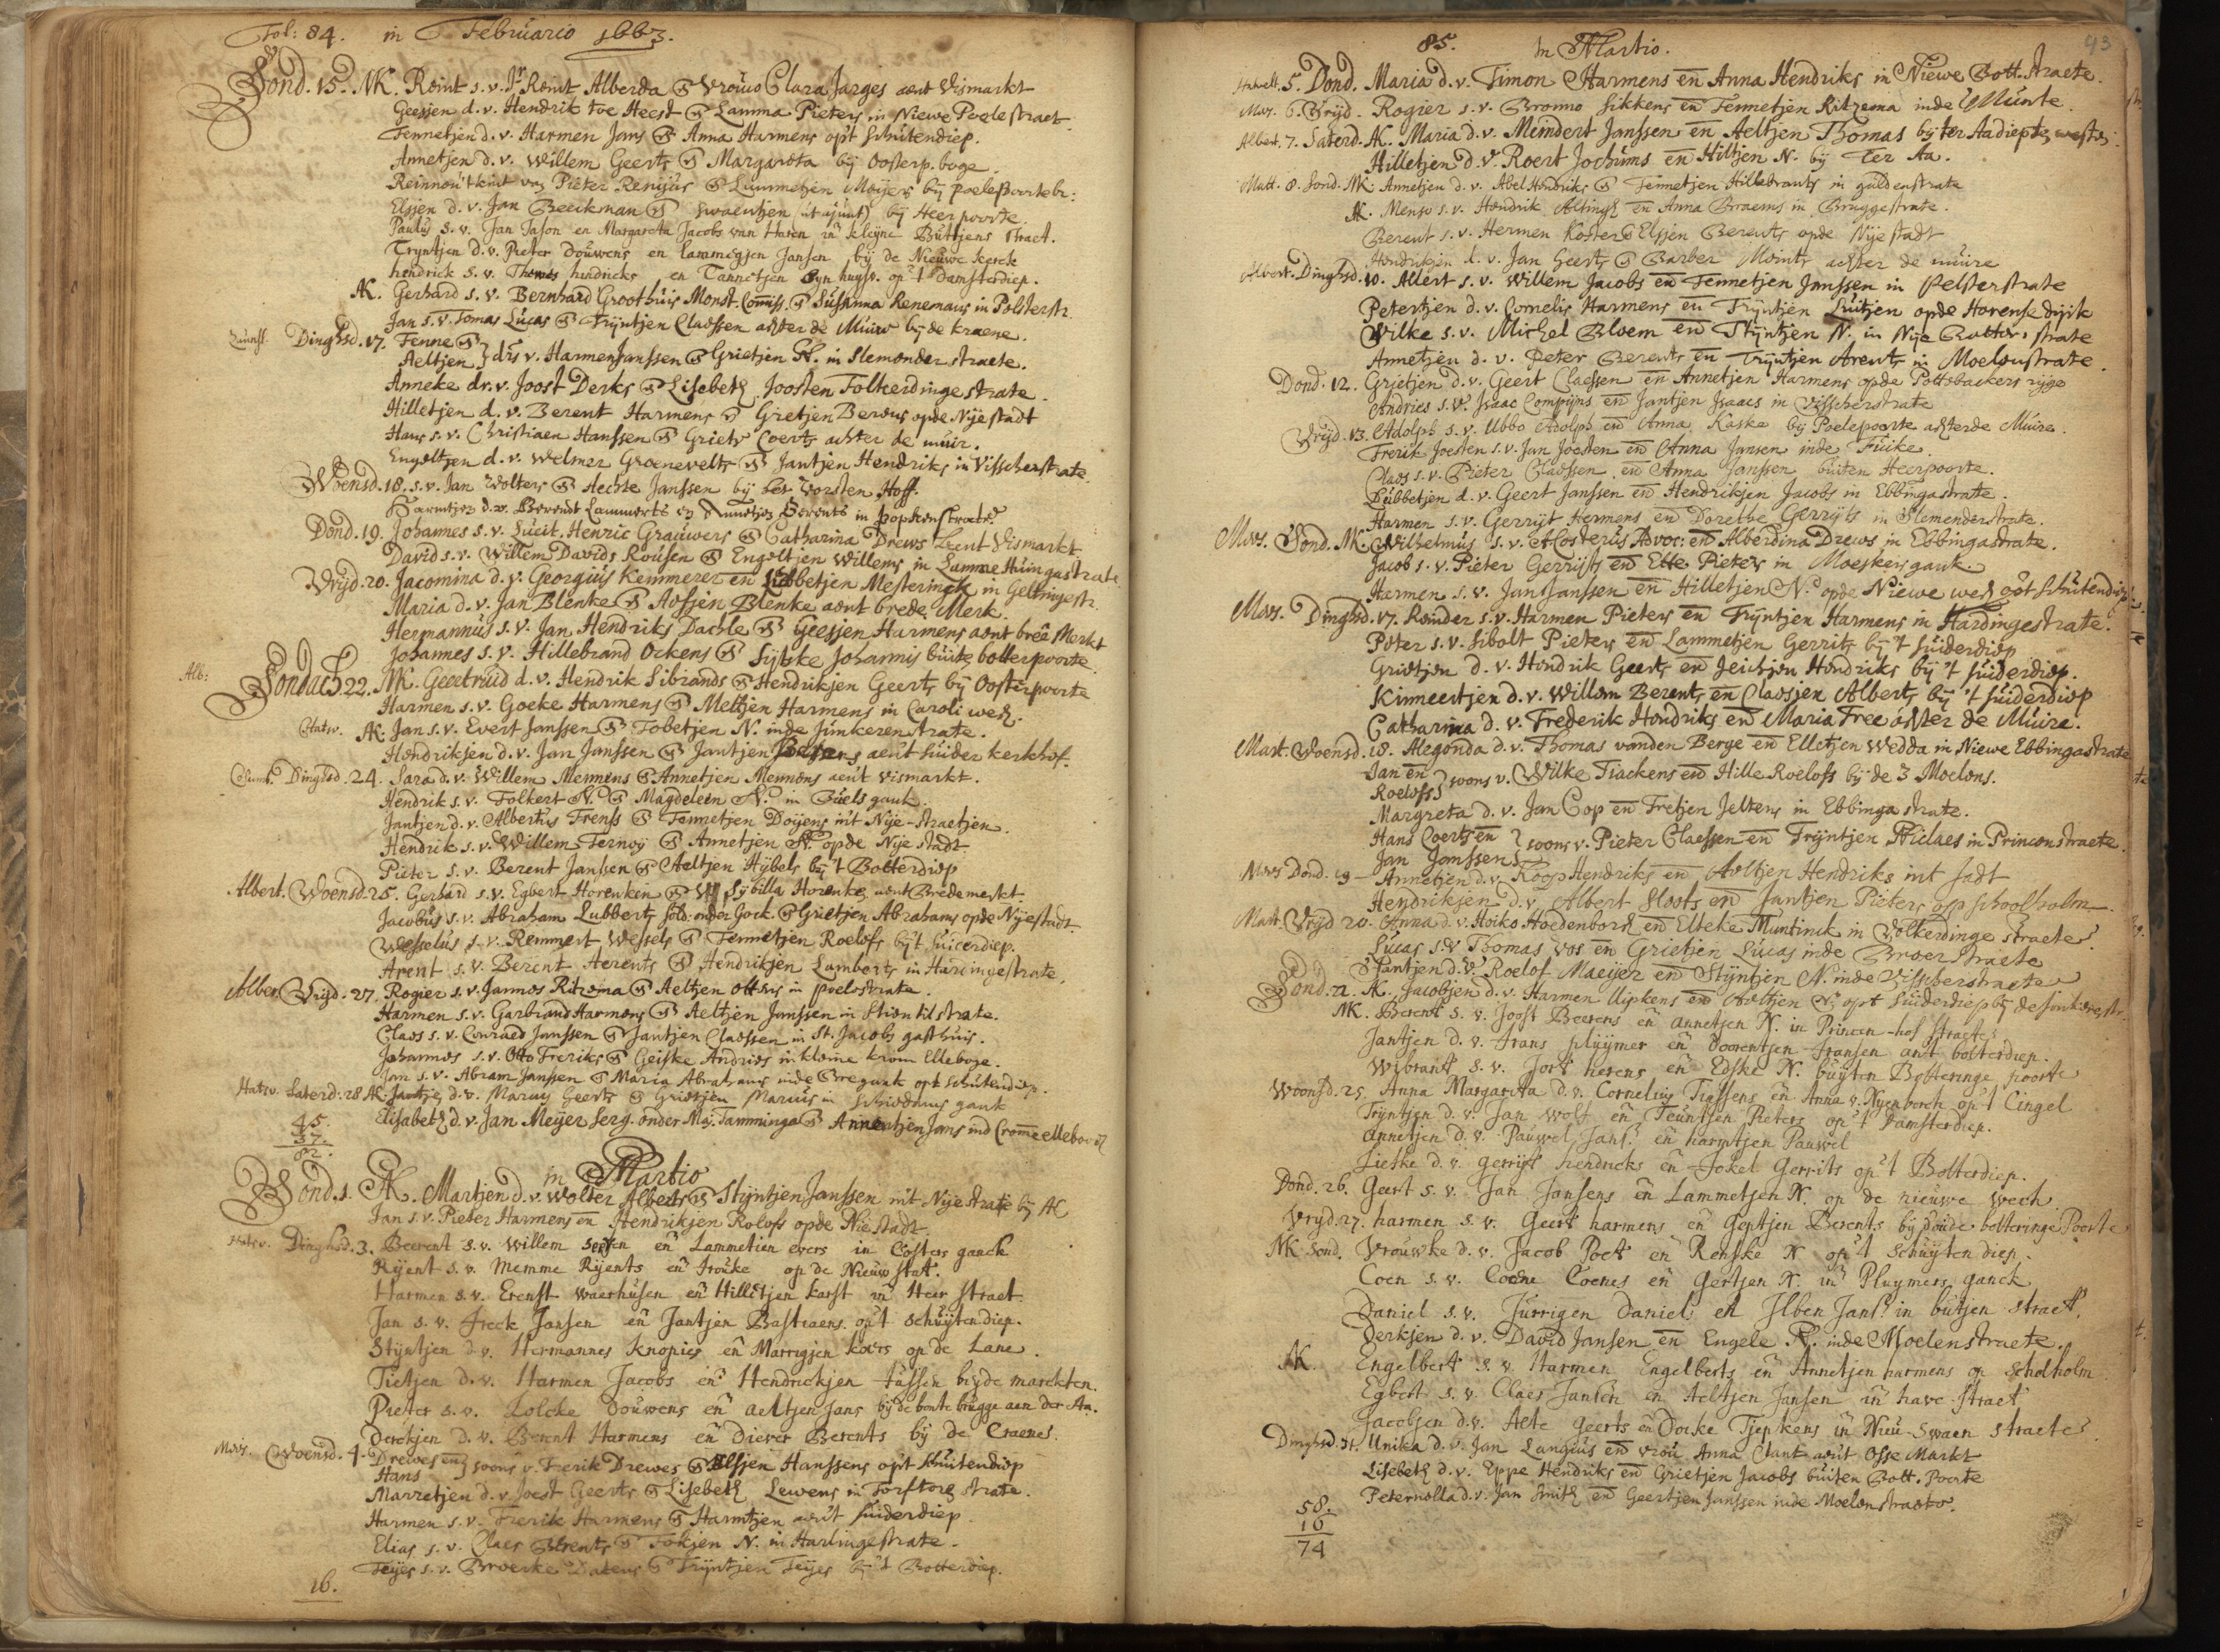 Fol: 84. in Februario 1663.
Sond. 15. NK. Reint s.v. Jr. Reint Alberda & Vrouw Clara Jarges aent Vismarkt
Geesjen d.v. Hendrik toe Heest & Lamma Pieters in Niewe Poelestraet
Fennetjen d.v. Harmen Jans & Anna Harmens op't Schuitendiep.
Annetjen d.v. Willem Geerts & Margareta bij Oosterp. boge.
Reinnou't kint van Pieter Renijus & Lummetjen Meijers bij poelepoortebr:
Elsjen d.v. Jan Beeckman & Swaentjen (ut ajunt) bij Heerpoorte.
Paulus s.v. Jan Jason en Margareta Jacobs van Haren in kleijne Buttjens straet.
Tryntjen d.v. Pieter Douwens en Lammegjen Jansen bij de Nieuwe kerck
hendrick s.v. Thomas hindricks en Tannetjen syn huysv. op't Damsterdiep.
AK. Gerhard s.v. Bernhard Groothuis Monst. Comiss. & Susanna Renemans in Pelsterstr.
Jan s.v. Tomas Lucas & Trijntjen Claessen achter de Muire bij de kraene.
Dinghsd. 17. Fenne &
Aeltjen } drs v. Harmen Janssen & Grietjen N. in Slemonder straete.
Anneke dr. v. Joost Derks & Lisebeth Joosten Folkerdinge strate.
Hilletjen d.v. Berent Harmens & Gretjen Berens opde Nije stadt
Hans s.v. Christiaen Hanssen & Griete Coerts achter de muir.
Engeltjen d.v. Welmer Groenevelts & Jantjen Hendriks in Visscherstrate.
Woensd. 18. s.v. Jan Wolters & Aechte Janssen bij het Vorsten Hoff.
Harmtjen d.v. Berendt Lammerts en Annetjen Berents in popkenstraete
Dond. 19. Johannes s.v. Luit. Henric Grauwers & Catharina Drews aent Vismarkt
David s.v. Willem Davids Rousen & Engeltjen Willems in Lamme Huingastrate
Vrijd. 20. Jacomina d.v. Georgius Kemmerer en Lubbetjen Mesterinck in Geltingestr.
Maria d.v. Jan Blenke & Aefjen Blenke aent brede Merk.
Hermannus s.v. Jan Hendriks Dachle & Geesjen Harmens aent breê Merkt
Johannes s.v. Hillebrand Ockens & Sytske Johannis buite botterpoorte
Alb: Sondach 22. NK. Geertruid d.v. Hendrik Sibrands & Hendrikjen Geerts bij Oosterpoorte
Harmen s.v. Goeke Harmens & Meltjen Harmens in Caroli wech.
Hatw. AK. Jan s.v. Evert Janssen & Tobetjen N. inde Junkeren strate.
Hendriksjen d.v. Jan Janssen & Jantjen aen't Suider kerkhof.
Dinghsd. 24. Sara d.v. Willem Mennens & Annetjen Mennens aen't Vismarkt.
Hendrik s.v. Folkert N. & Magdeleen N. in Buels gank.
Jantjen d.v. Albertus Frenss & Fennetjen Doijens in't Nije-straetjen.
Hendrik s.v. Willem Fernoy & Annetjen N. opde Nije stadt
Pieter s.v. Berent Janssen & Aeltjen Hybels bij 't Botterdiep
Albert. Woensd. 25. Gerhard s.v. Egbert Horenken & Sybilla Horenke aent Bredemerkt.
Jacobus s.v. Abraham Lubberts sold. onder Gock. & Grietjen Abrahams opde Nyestadt.
Wesselus s.v. Remmert Wessels & Fennetjen Roelofs bij't Suicerdiep.
Arent s.v. Berent Aerents & Hendrikjen Lamberts in Haringestrate.
Alber. Vrijd. 27. Rogier s.v. Jannes Ritzema & Aeltjen Ottens in poelestrate.
Harmen s.v. Garbrand Harmens & Aeltjen Janssen in Stientilstrate.
Claes s.v. Conraed Janssen & Jantjen Claessen in St. Jacobs gasthuis.
Johannes s.v. Otto Freriks & Geiske Andries in kleine krom Elleboge.
Jan s.v. Abram Janssen & Maria Abrahams inde Bregank opt Schuitendiep.
Hatw. Saterd. 28 AK. Jantje d.v. Marcus Geerts & Grietjen Marcus in Schoedams gank
Elisabeth d.v. Jan Meijer Serg. onder Maj. Tamminga & Annentjen Jans ind Cromme elleboog
45.
37.
82.
in Martio
Sond. 1. AK. Martjen d.v. Wolter Alberts & Stijntjen Janssen in't Nije strate bij AC
Jan s.v. Pieter Harmens en Hendrikjen Rolofs opde Niestadt.
Hatw. Dinghsd. 3. Beerent s.v. Willem en Lammetien evers in Costers ganck
Rijent s.v. Memme Rijents en Trouke op de Nieuw stat.
Harmen s.v. Erenst Waerhusen en Hilletjen karst in Heer straet
Jan s.v. Freck Jansen en Jantjen Bastiaens op't Schuijtendiep.
Stijntjen d.v. Hermannes Knopies en Marrigjen koers op de Lane.
Tietjen d.v. Harmen Jacobs en Hendrickjen tussen beyde marckten.
Pieter s.v. Lolcke Douwens en Aeltjen Jans bij de bonte brugge aen der Aa.
Derckjen d.v. Berent Harmens en Diever Berents bij de Craenes.
Mees. Woensd. 4. Drewes en
Hans } soons v. Frerik Drewes & Elsjen Hanssens op't Schuitendiep
Marretjen d.v. Joest Geerts & Lisebeth Lewens in Torftorestrate.
Harmen s.v. Frerik Harmens & Harmtjen aen't Suiderdiep
Elias s.v. Claes Berents & Fokjen N. in Harlingestrate.
Teijes s.v. Broerke & Trijntjen Teijes bij't Botterdiep.
16.
85. In Martio. 93
5. Dond. Maria d.v. Timon Harmens en Anna Hendriks in Niewe Bott. straete.
Mees. 6. Vrijd. Rogier s.v. Bronno Sikkens en Fennetjen Ritzema inde Munte.
Albert. 7. Saterd. AK. Maria d.v. Meindert Janssen en Aeltjen Thomas bij ter Aadiepte westz:
Hilletjen d.v. Roert Jochums en Hiltjen N. bij Ter Aa.
Matt. 8. Sond. NK. Annetjen d.v. Abel Hendriks & Fennetjen Hillebrants in guldenstrate
AK. Menso s.v. Hendrik Altingh en Anna Braems in Bruggestrate.
Berent s.v. Hermen Koster & Elsjen Berents opde Nije stadt
Hendrikjen d.v. Jan Geerts & Barber Meints achter de muire
Albert. Dinghsd. 10. Albert s.v. Willem Jacobs en Fennetjen Janssen in Pelsterstrate
Petertjen d.v. Cornelis Harmens en Trijntjen Luitjen opde Horensedijk
Wilke s.v. Michel Bloem en Stijntjen N. in Nije Botter. strate
Annetjen d.v. Peter Berents en Trijntjen Arents in Moelenstrate.
Dond. 12. Grietjen d.v. Geert Claessen en Annetjen Harmens opde Pottebackers rijge
Andries s.v. Isaac Compijns en Jantjen Isaacs in Visscherstrate
Vrijd. 13. Adolph s.v. Ubbo Adolph en Anna Kaske bij Poelepoorte achterde Muire.
Frerik Joesten s.v. Jan Joesten en Anna Jansen inde Fuike.
Claes s.v. Pieter Claessen en Anna Janssen buiten Heerpoorte.
Lubbetjen d.v. Geert Janssen en Hendrikjen Jacobs in Ebbingastrate.
Harmen s.v. Gerrijt Hermens en Dorethe Gerrijts in Slemenderstrate.
Mees. Sond. NK. Wilhelmus s.v. Alosterus Advoc: en Alberdina Drews in Ebbingastrate.
Jacob s.v. Pieter Gerrijts en Etke Pieters in Moeskersgank.
Harmen s.v. Jan Janssen en Hilletjen N. opde Niewe wech
Mees. Dinghsd. 17. Reinder s.v. Harmen Pieters en Trijntjen Harmens in Hardingestrate.
Peter s.v. Sibolt Pieters en Lammetjen Gerrits bij't Suiderdiep
Grietjen d.v. Hendrik Geerts en Jeichjen Hendriks bij't Suiderdiep.
Kinneertjen d.v. Willem Berents en Claesjen Alberts bij't Suiderdiep
Catharina d.v. Frederik Hendriks en Maria Free achter de Muire.
Matt. Woensd. 18. Alegonda d.v. Thomas vanden Berge en Elletjen Wedda in Niewe Ebbingastrate
Jan en
Roelofs } soons v. Wilke Tiackens en Hille Roelofs bij de 3 Moelens.
Margreta d.v. Jan Cop en Fretjen Jeltens in Ebbinga strate.
Hans Coerts en
Jan Janssen } soons v. Pieter Claessen en Trijntjen Niclaes in Princenstraete.
Mees Dond. 19 Annetjen d.v. Koop Hendriks en Aeltjen Hendriks int Jadt
Hendriksjen d.v. Albert Sloots en Jantjen Pieters op schoolholm
Matt. Vrijd 20. Anna d.v. Hoiko Hoedenborch en Elteke Muntinck in Volkerdinge straete
Lucas s.v. Thomas Vos en Grietjen Lucas inde Broerstraete
Jantjen d.v. Roelof Maeijer en Stijntjen N. inde Visscherstraete
Sond. 22. AK. Jacobjen d.v. Harmen Uipkens en Aeltjen N. opt Suiderdiep bij de Jonkerestr.
NK. Berent s.v. Joost Beerens en Annetjen N. in Princen-hof straete
Jantjen d.v. Frans pluijmer en Doorentjen Fransen ant botterdiep.
Wibrant s.v. Jort herens en Edske N. buijten Botteringe poorte
Woensd. 25. Anna Margareta d.v. Cornelius Tiassens en Anna v. Nijenborch op't Cingel
Trijntjen d.v. Jan Wolf en Teuntjen Pieters op't Damsterdiep.
Annetjen d.v. Pauwel Jans. en harmtjen Pauwel
Lieske d.v. Gerrijt hendricks en Jokel Gerrits op't Botterdiep.
Dond. 26. Geert s.v. Jan Jansens en Lammetjen N. op de nieuwe wech
Vryd. 27. harmen s.v. Geert harmens en Geptjen Berents bij d'oude botteringe Poorte
NK. Sond. Vrouwke d.v. Jacob Poet en Renske N op't Schuijtendiep.
Coen s.v. Coene Coenes en Gertjen N. in Pluymers ganck
Daniel s.v. Jurrigen Daniel en Ilben Jans. in butjen straet.
Derkjen d.v. David Jansen en Engele N. inde Moelenstraete.
AK. Engelbert s.v. Harmen Engelberts en Annetjen harmens op Scholholm
Egbert s.v. Claes Jansen en Aeltjen Jansen in have straet
Jacobjen d.v. Aete Geerts en Doeke Tjepkens in Nieu-Swaen straete
Dinghsd. 31. Unika d.v. Jan Langius en Vrou Anna Clant aen't Osse Markt
Lisebeth d.v. Eppe Hendriks en Grietjen Jacobs buiten Bott. Poorte
Peternella d.v. Jan Smith en Geertjen Janssen inde Moelenstraete.
58.
16
74